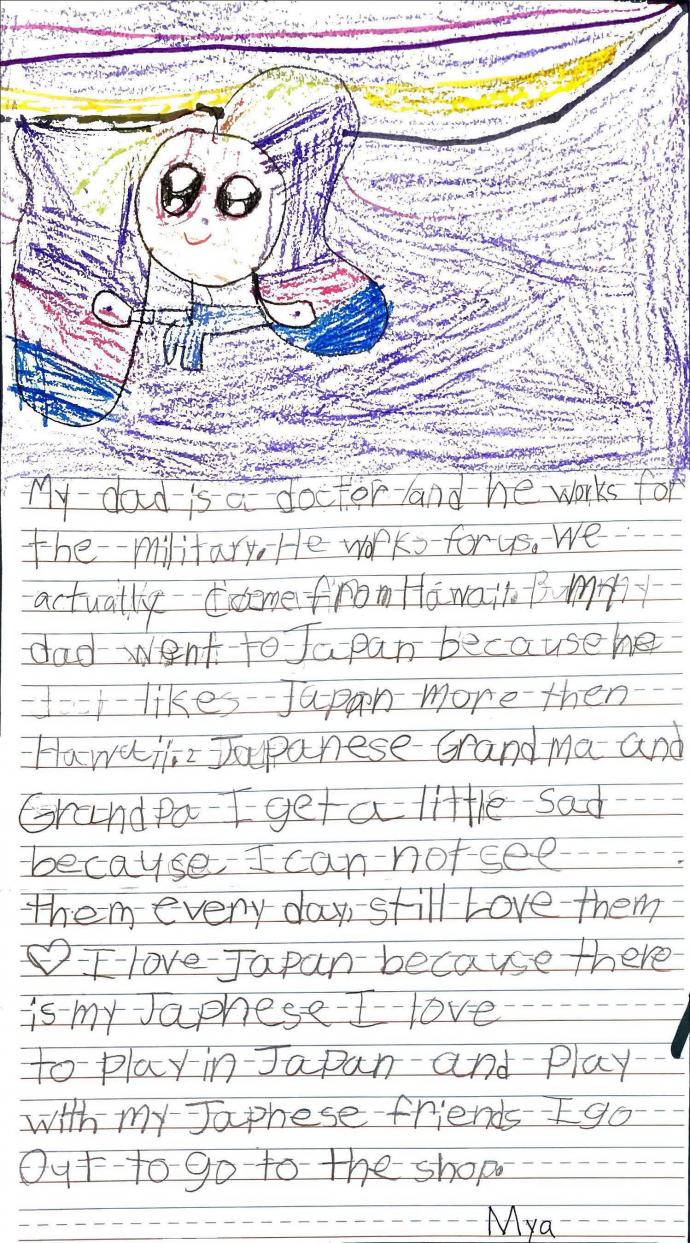 My dad is a doctor and he works for
the military. He works for us. We
actually come from Hawaii. My
dad went to Japan because he
likes Japan more then
Hawaii. Japanese Grandma and
Grandpa I get a little sad
because I can not see
them every day, still Love them
♡ I love Japan because there
is my Japhese I love
to play in Japan and Play
with my Japhese friends I go
Out to go to the shop.
Mya